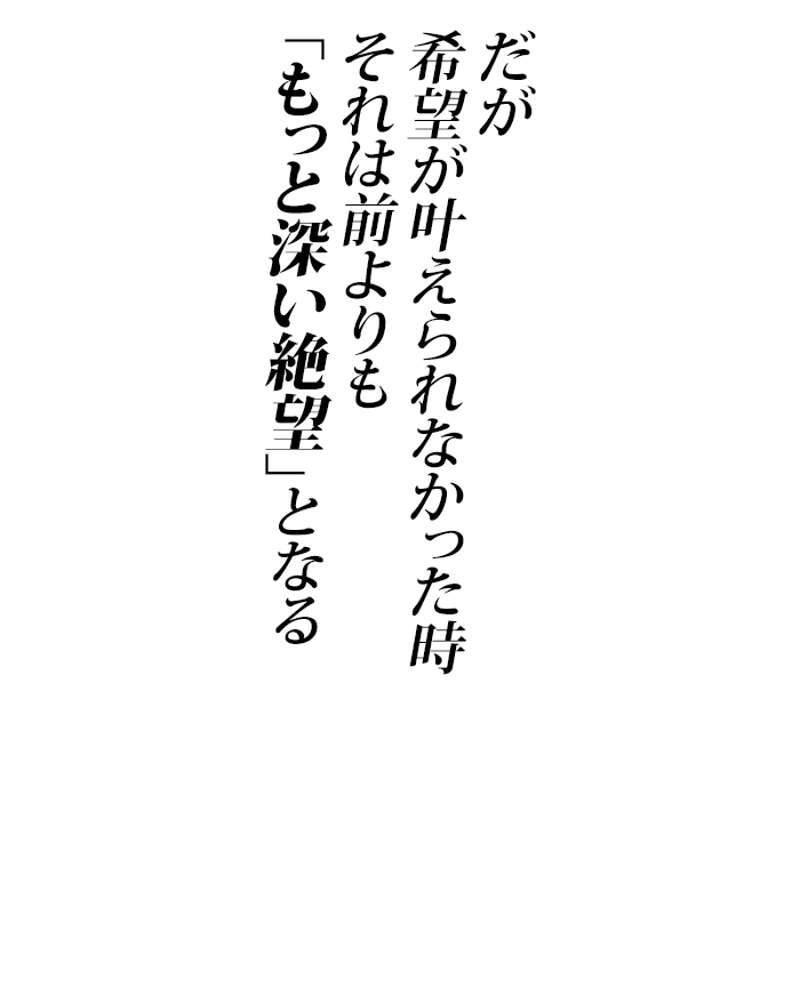 だが
希望が叶えられなかった時
それは前よりも
「もっと深い絶望」となる